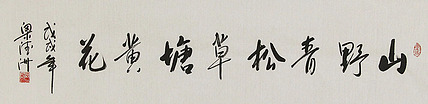 山野青松草塘黄花
戊戌年
梁沛洲